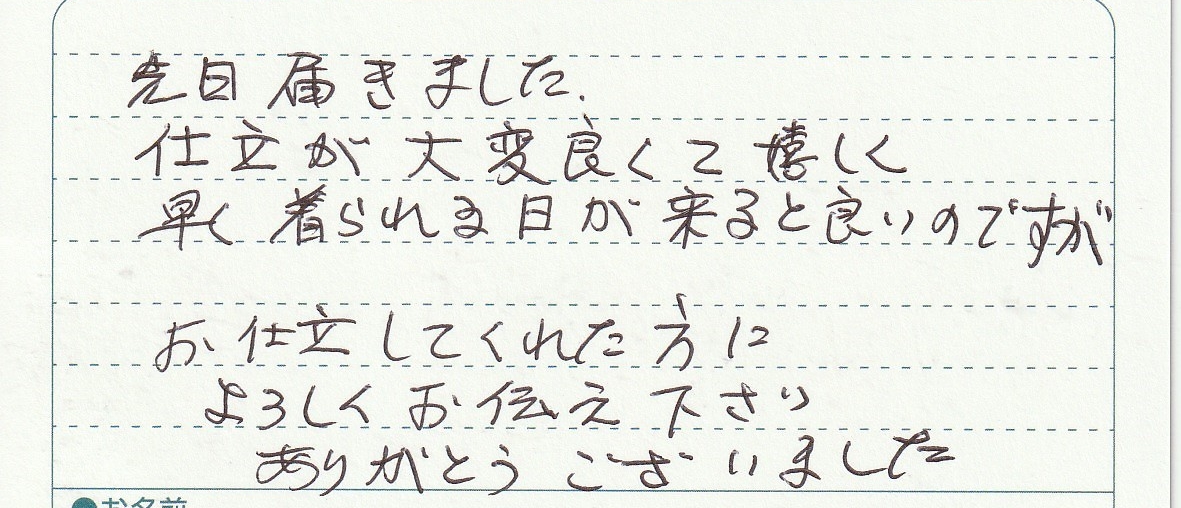 先日届きました.
仕立が大変良くて嬉しく
早く着られる日が来ると良いのですが
お仕立してくれた方に
よろしくお伝え下さい
ありがとうございました
●お名前